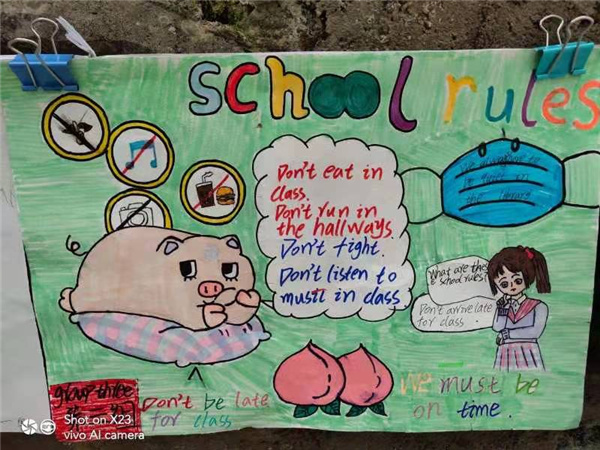 school rules
Don't eat in
class.
Don't run in
the hallways
Don't fight.
Don't listen to
music in class
quiet in
the library
What are the
school rules?
Don't arrive late
for class.
group three
Don't be late
for class
We must be
on time.
Shot on X23
vivo AI camera